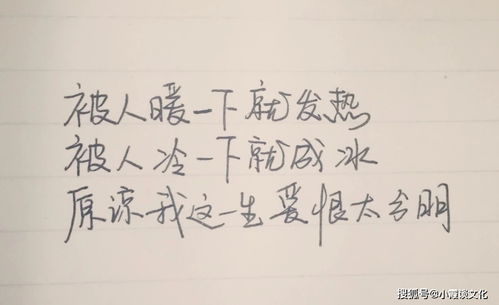 被人暖一下就发热
被人冷一下就成冰
原谅我这一生爱恨太分明
搜狐号@小霞谈文化